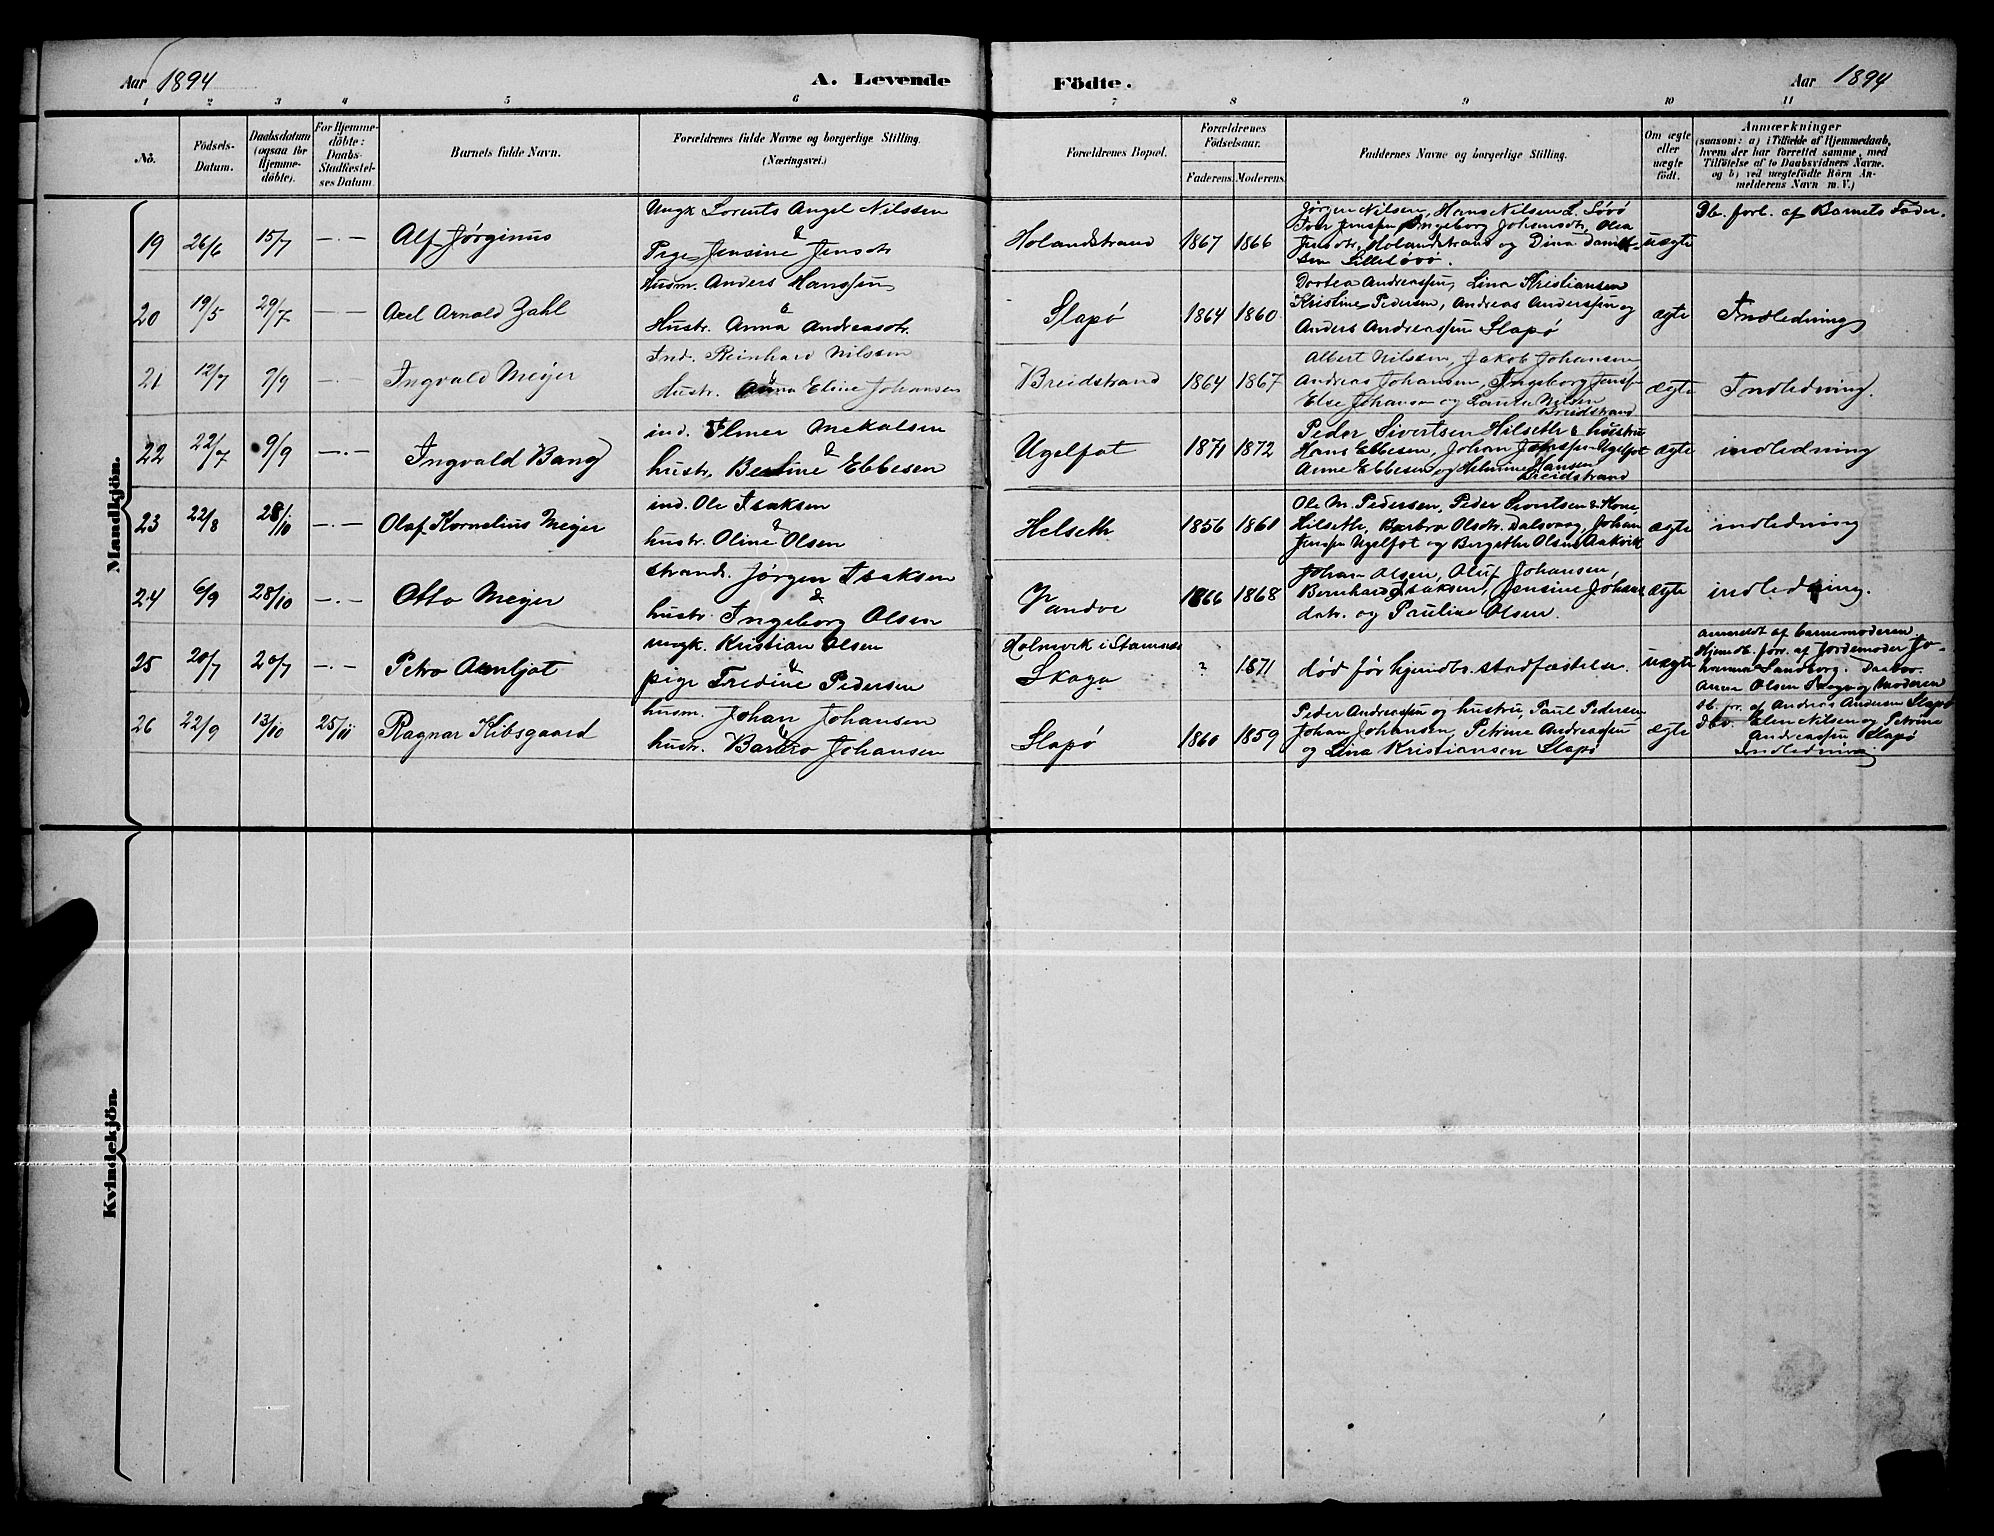 Aar 1894
A. Levende Födte.
Aar 1894
1 2 3 4 5 6 7 8 9 10 11
No.
Födsels-Datum.
Daabsdatum (ogsaa for Hjemme-döbte).
For Hjemme-döbte: Daabs-Stadfæstel-ses Datum.
Barnets fulde Navn.
Forældrenes fulde Navne og borgerlige Stilling.
(Næringsvei.)
Forældrenes Bopæl.
Forældrenes Födselsaar.
Faderens. Moderens.
Faddernes Navne og borgerlige Stilling.
Om ægte eller uægte födt.
Anmærkninger
(saasom: a) i Tilfælde af Hjemmedaab,
hvem der har forrettet samme, med
Tilföielse af to Daabsvidners Navne.
og b) ved uægtefödte Börn An-
melderens Navn m. V.)
Mandkjön.
19 26/6 15/7 —.— Alf Jørginus
Ungk Lorents Angel Nilssen
&
Pige Jensine Jensdtr
Holandstrand 1867 1866
Jørgen Nilsen, Hans Nilsen L. Søvø
Iver Jenssen, Ingeborg Johansdtr, Olea
Jensdtr, Holandstrand og Dina Daniel-
sen Lillesøvø.
uægte
Db. forl. af Barnets Fader.
20 19/5 29/7 —.— Axel Arnold Zahl
Husm. Anders Hanssen
&
Hustr. Anna Andreasdtr.
Slapø 1864 1860
Dortea Andreassen, Lina Kristiansen
Kristine Pedersen, Andreas Anderssen og
Anders Andreassen Slapø
ægte
Indledning
21 12/7 9/9 —.— Ingvald Meyer
Ind. Reinhard Nilssen
&
Hustr. Anna Eline Johansen
Breidstrand 1864 1867
Albert Nilssen, Jakob Johansen
Andreas Johansen, Ingeborg Jenssen
Else Johansen og Laura Nilsen
Breidstrand
ægte
Indledning.
22 22/7 9/9 —.— Ingvald Bang
ind. Elmer Mekalsen
&
hustr. Berline Ebbesen
Ugelfot 1871 1872
Peder Sivertsen Hilseth & hustru
Hans Ebbesen, Johan Jenssen Ugelfot
Anne Ebbesen og Helmine Hansen
Breidstrand
ægte
indledning
23 22/8 28/10 —.— Olaf Kornelius Meyer
ind. Ole Isaksen
&
hustr. Oline Olsen
Helseth 1856 1861
Ole M. Pederssen, Peder Sivertsen & Kone
Hilseth, Barbra Olsdtr. Dalsvaag, Johan
Jenssen Ugelfot og Bergethe Olsen Aakvik
ægte
indledning
24 6/9 28/10 —.— Otto Meyer
strands. Jørgen Isaksen
&
hustr. Ingeborg Olsen
Vandve 1866 1868
Johan Olsen, Oluf Johansen,
Bernhard Isaksen, Jensine Johans
datr. og Pauline Olsen.
ægte
indledning.
25 20/7 20/7 —.— Petro Arnljot
ungk. Kristian Olsen
&
pige Fredine Pedersen
Holmvik i Stamnes
Skaga
? 1871
død før hjemdb. stadfæstelse.
uægte
anmeldt af barnemoderen.
Hjemdb. forr. af Jordemoder Jo-
hanna Sandberg. Daabsv.
Anne Olsen Skaga og Moderen
26 22/9 13/10 25/11 Ragnar Kibsgaard
husm. Johan Johansen
&
hustr. Barbro Johansen
Slapø 1860 1859
Peder Andreassen og hustru, Paul Pedersen,
Johan Johansen, Petrine Andreassen
og Lina Kristiansen Slapø
ægte
Db. for. af Andreas Andersen Slapø
dbv. Elen Nilsen og Petrine
Andreassen Slapø
Indledning.
Kvindekjön.